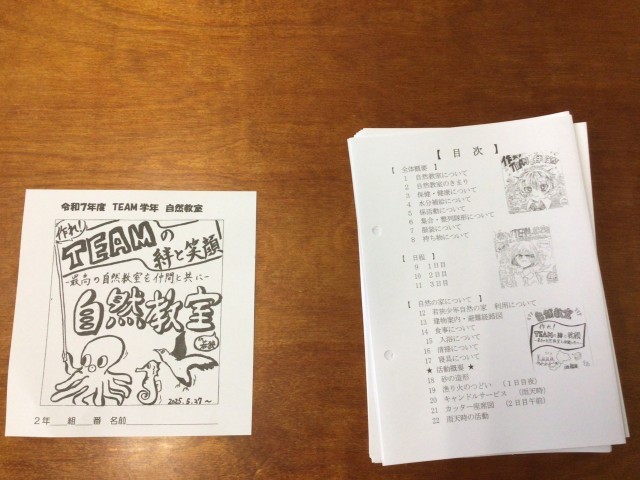 令和7年度 TEAM学年 自然教室
作れ!
TEAMの
絆と笑顔
-最高の自然教室を仲間と共に-
自然教室
in 若狭
2025.5.27~
2年 組 番 名前
【 目 次 】
【 全体概要 】
1 自然教室について
2 自然教室のきまり
3 保健・健康について
4 水分補給について
5 係活動について
6 集合・整列隊形について
7 服装について
8 持ち物について
【 日程 】
9 1日目
10 2日目
11 3日目
【 自然の家について 】
12 若狭少年自然の家 利用について
13 建物案内・避難経路図
14 食事について
15 入浴について
16 清掃について
17 寝具について
★ 活動概要 ★
18 砂の造形
19 漁り火のつどい (1日目夜)
20 キャンドルサービス (雨天時)
21 カッター座席図 (2日目午前)
22 雨天時の活動
自然教室
作れ!
TEAMの絆と笑顔